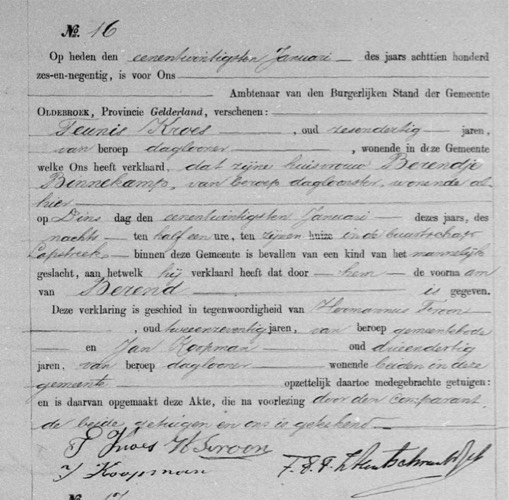 No. 16
Op heden den eenentwintigsten Januari des jaars achttien honderd
zes-en-negentig, is voor Ons
Ambtenaar van den Burgerlijken Stand der Gemeente
OLDEBROEK, Provincie Gelderland, verschenen:
Teunis Kroes, oud zesendertig jaren,
van beroep daglooner, wonende in deze Gemeente
welke Ons heeft verklaard, dat zijne huisvrouw Berendje
Binnekamp, van beroep dagloonster, wonende al-
hier
op Dinsdag den eenentwintigsten Januari dezes jaars, des
nachts ten half een ure, ten zijnen huize in de buurtschap
binnen deze Gemeente is bevallen van een kind van het mannelijk
geslacht, aan hetwelk hij verklaard heeft dat door hem de voornaam
van Berend is gegeven.
Deze verklaring is geschied in tegenwoordigheid van Hermannus Froon
, oud tweeenzeventig jaren, van beroep gemeentebode
en Jan Koopman oud
jaren, van beroep daglooner wonende beiden in deze
gemeente opzettelijk daartoe medegebrachte getuigen:
en is daarvan opgemaakt deze Akte, die na voorlezing door den comparant
de beide getuigen en ons is geteekend
T Kroes H Froon
J Koopman
No. 17